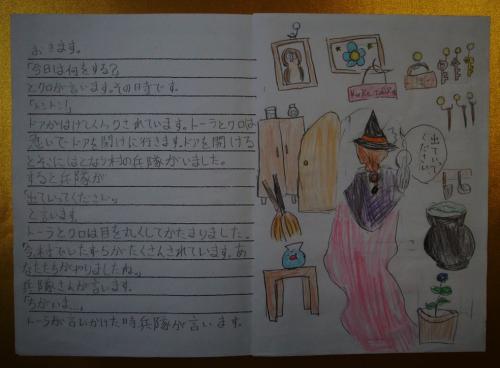 おきます。
「今日は何をする?」
とクロが言います。その日寺です。
「トントン!」
ドアがはげしくノックされています。トーラとクロは
急いでドアを開けに行きます。ドアを開ける
とそこにはとなり村の兵隊がいました。
すると兵隊が
「出ていってください。」
と言います。
トーラとクロは目を丸くしてかたまりました。
「今、村でいたずらがたくさんされています。あ
なたたちがやりましたね。」
兵隊さんが言います。
「ちがいま…」
トーラが言いかけた時兵隊が言います。
出ていって
ください